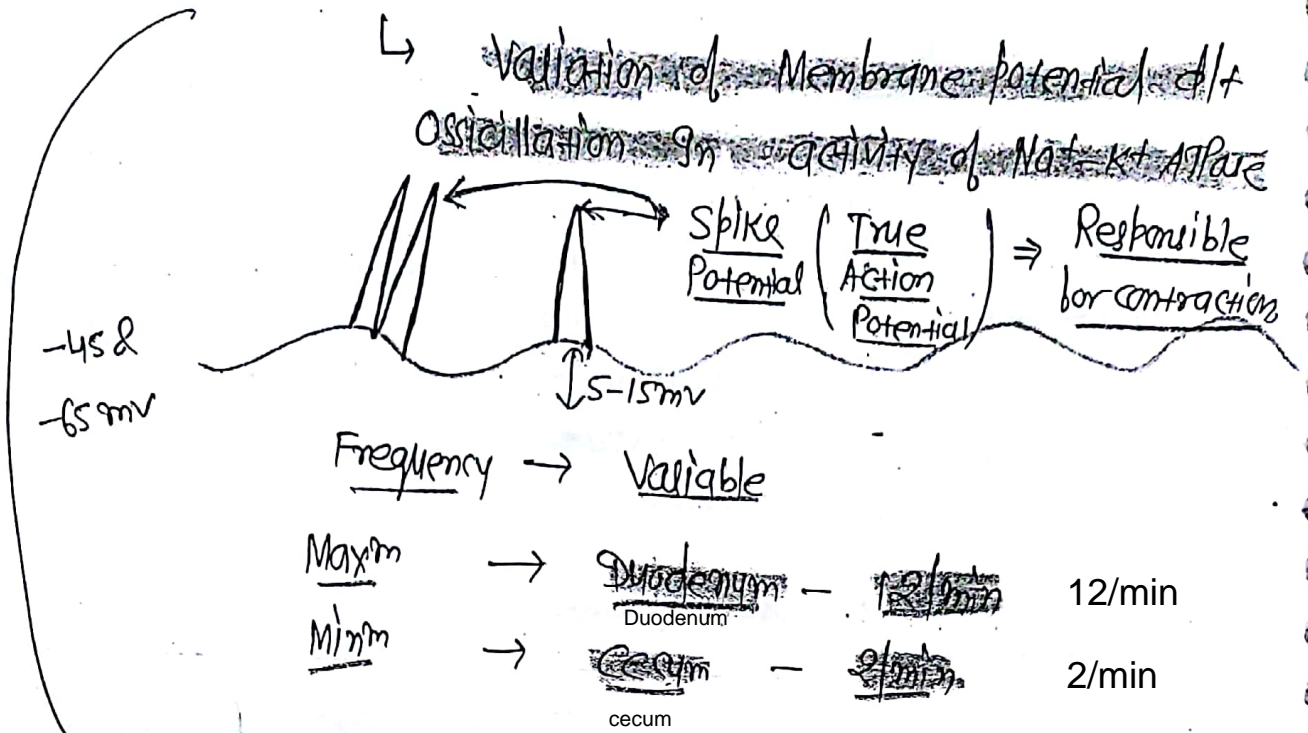 ↳ Variation of Membrane potential d/t
Ossicillation In activity of Na+-K+ ATPase
Spike Potential (True Action Potential) ⇒ Responsible for contraction
-45 &
-65 mv
5-15mv
Frequency → Variable
Maxm → Duodenum - 12/min 12/min
Duodenum
Minm → Cecum - 2/min 2/min
cecum